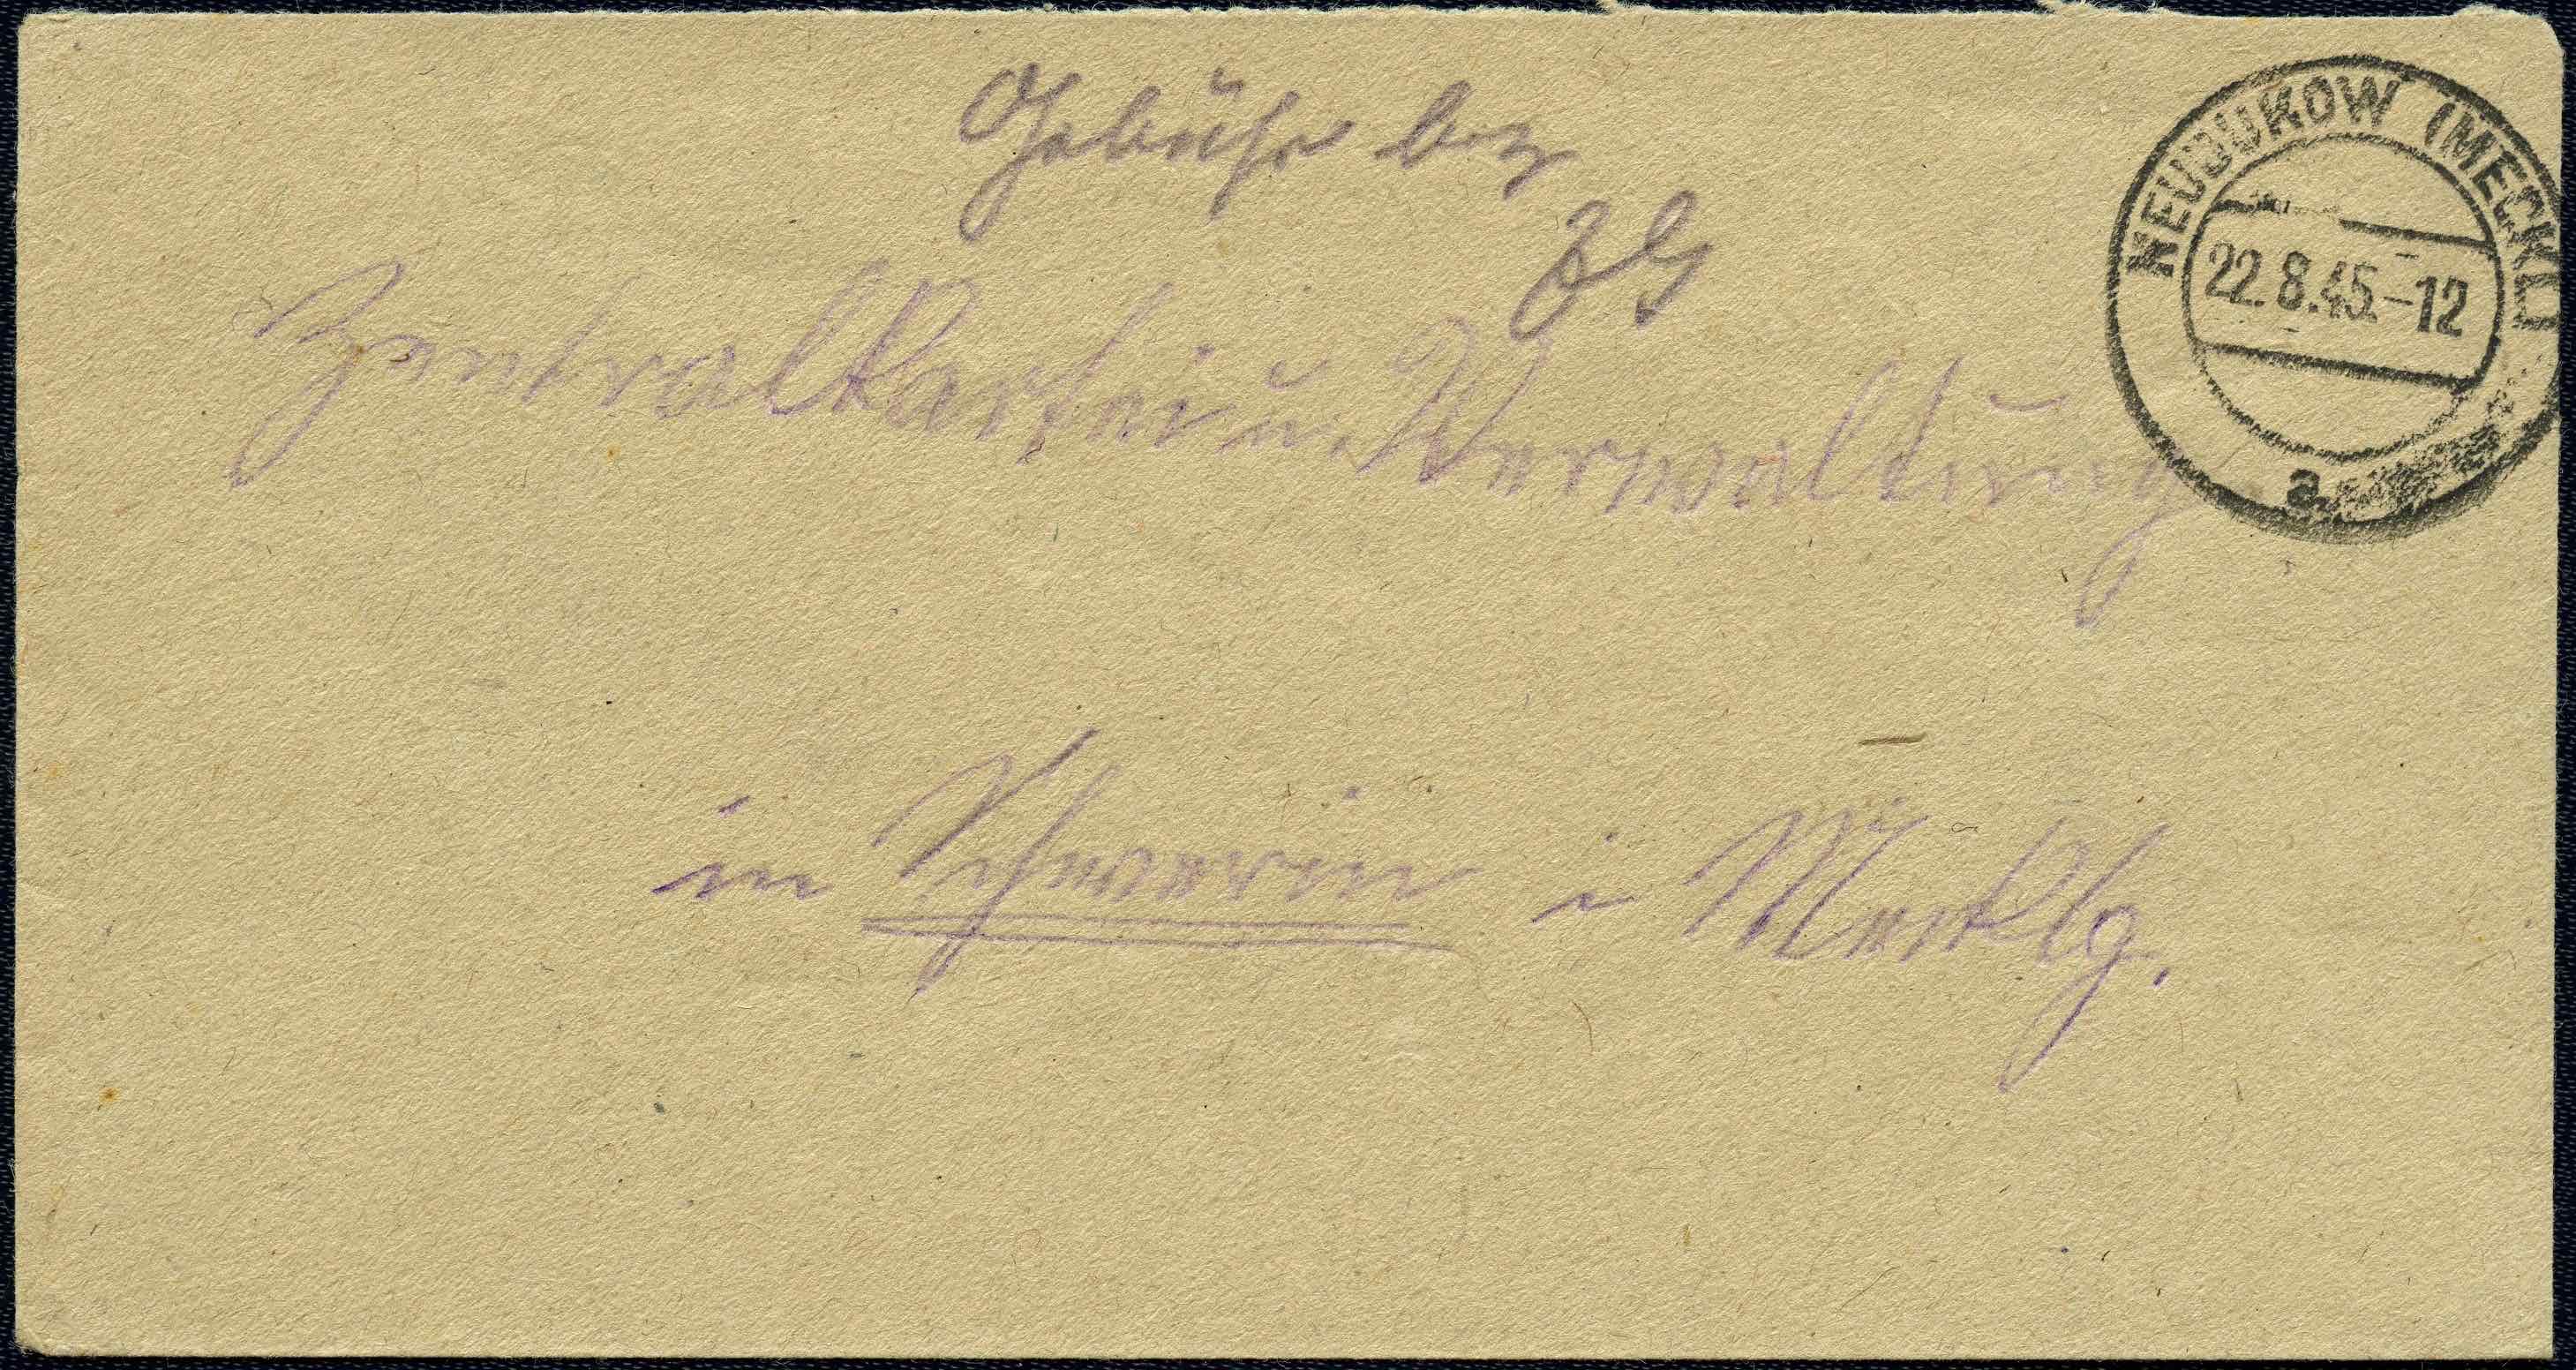 Gebühr bez
Zentralkartei u. Verwaltung
in Schwerin i Mecklbg.
NEUBUKOW (MECKL)
22.8.45.-12
a